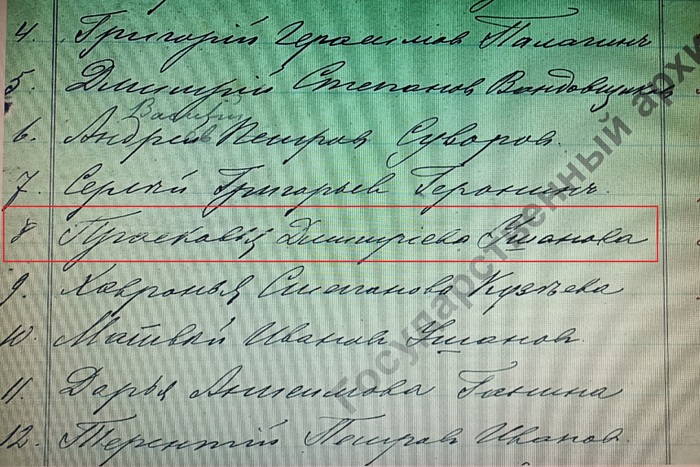 4. Григорій Герасимов Палагинъ
5. Дмитрій Степанов Вандовщиков
Василий
6. Андрей Петров Суворов.
7. Сергѣй Григорьев Геронинъ.
8 Прасковья Дмитріева Ушанова
9. Хавронья Степанова Кузьева
10. Матвѣй Иванов Ушанов.
11. Дарья Анисимова Ганина
12. Терентій Петров Иванов.
Государственный архи